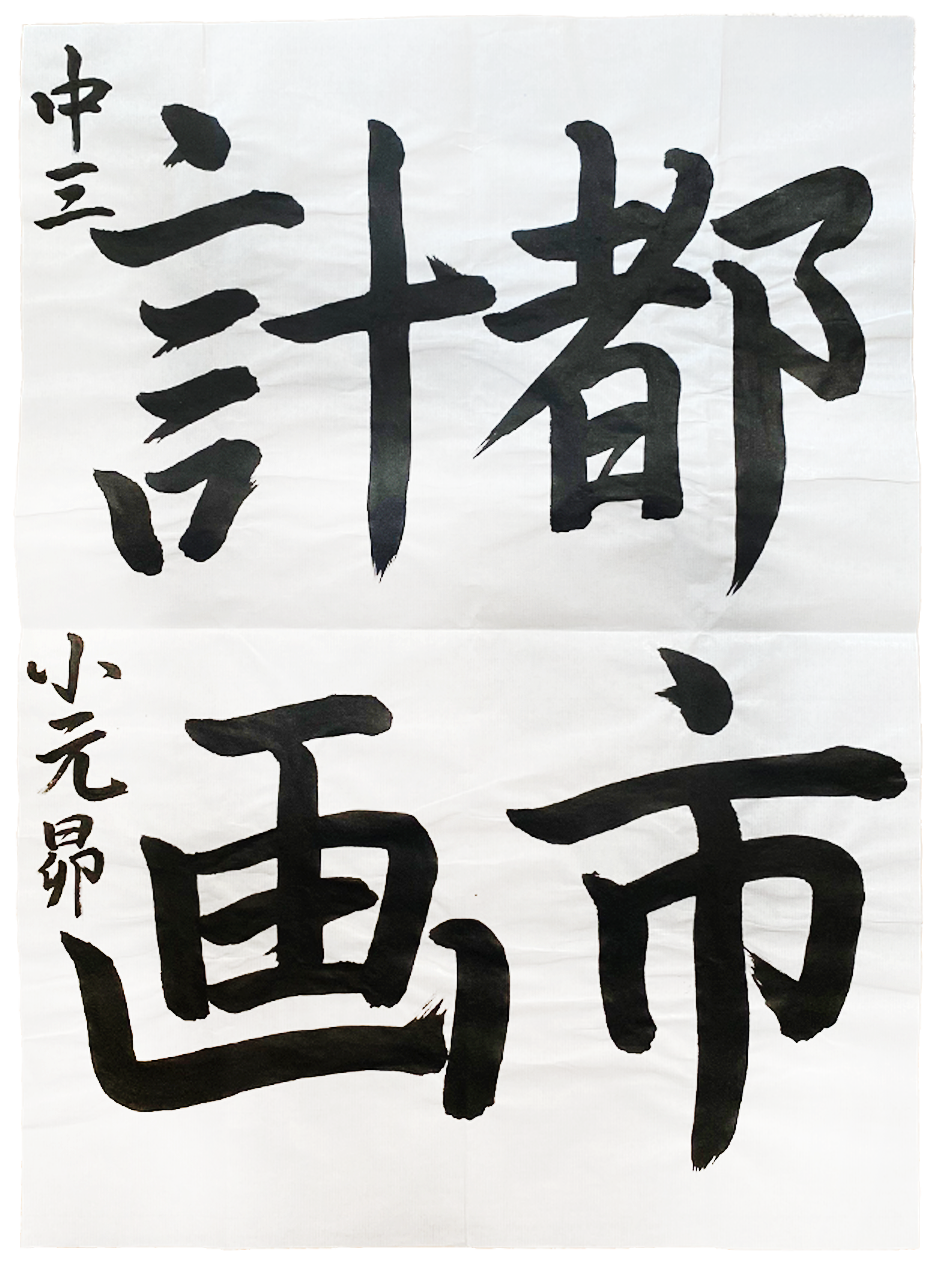 都市
計画
中三 小元昴